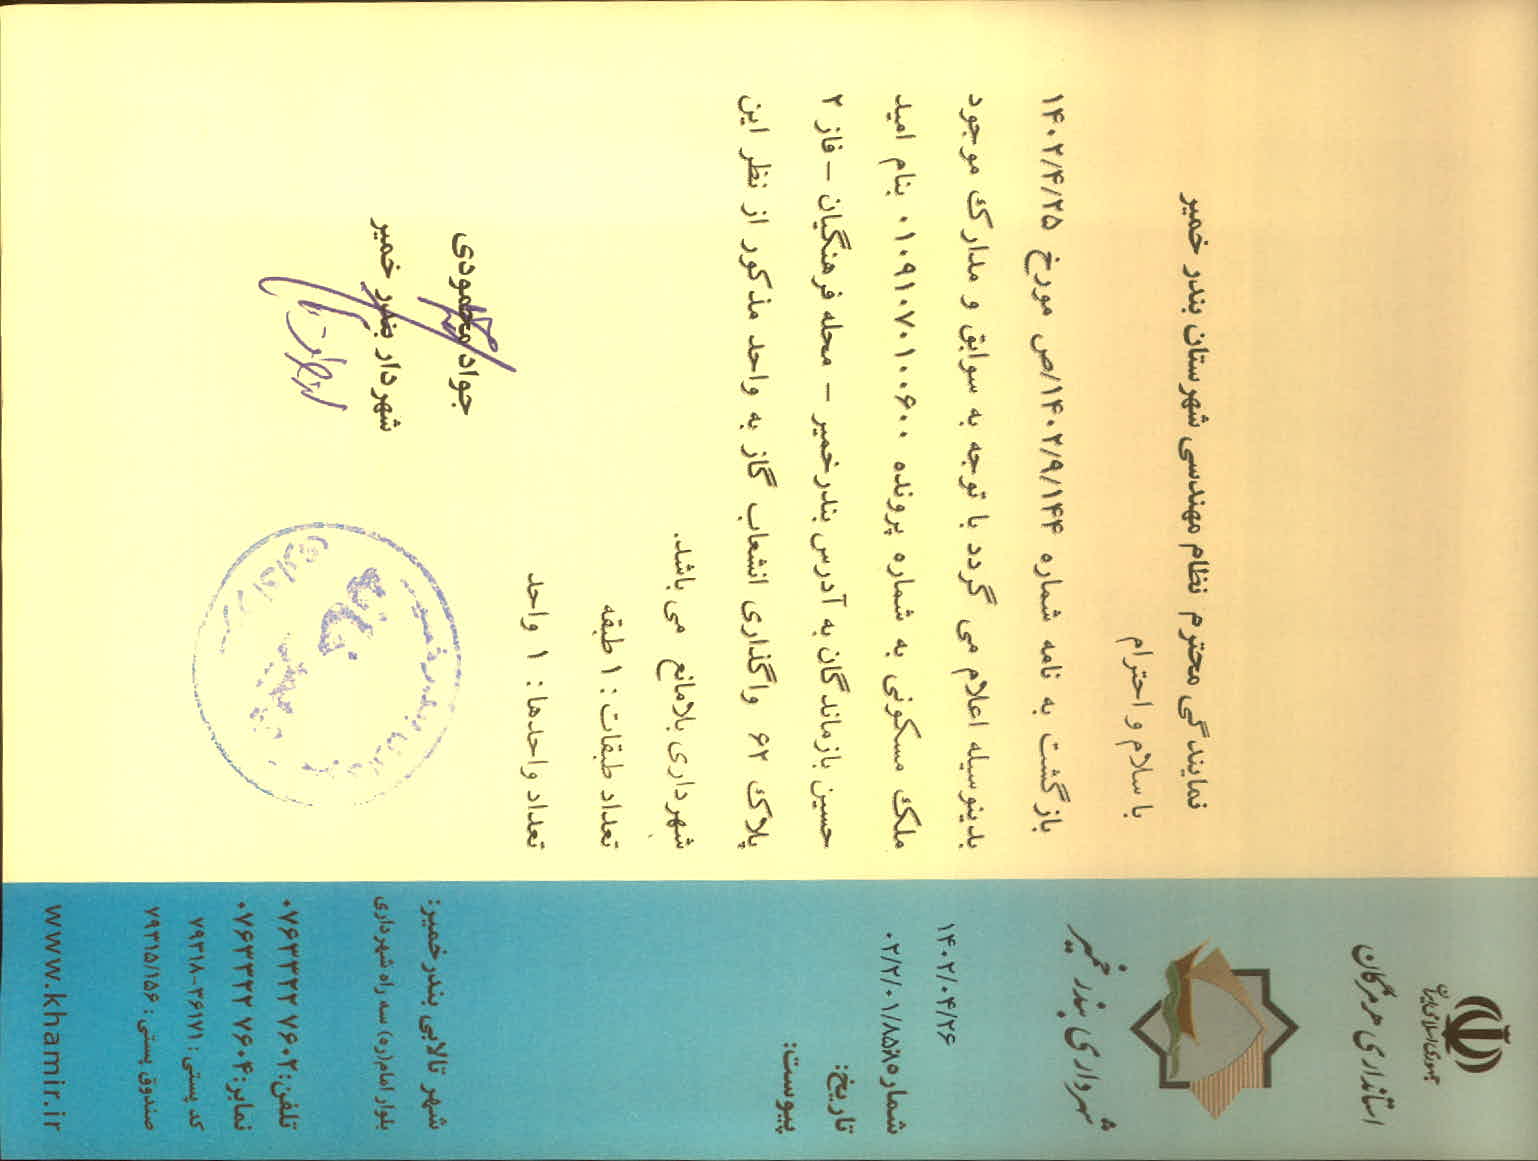 جمهوری اسلامی ایران
استانداری هرمزگان
شهرداری بندر خمیر
۱۴۰۲/۰۴/۲۶
شماره ۰۲/۲/۰۱/۸۵۸
تاریخ:
پیوست:
نمایندگی محترم نظام مهندسی شهرستان بندر خمیر
با سلام و احترام
بازگشت به نامه شماره ۱۴۰۲/۹/۱۴۴/ص مورخ ۱۴۰۲/۴/۲۵
بدینوسیله اعلام می گردد با توجه به سوابق و مدارک موجود
ملک مسکونی به شماره پرونده ۰۱۰۹۱۰۷۰۱۰۰۶۰۰ بنام امید
حسین بازماندگان به آدرس بندرخمیر – محله فرهنگیان – فاز ۲
پلاک ۶۲ واگذاری انشعاب گاز به واحد مذکور از نظر این
شهرداری بلامانع می باشد.
تعداد طبقات : ۱ طبقه
تعداد واحدها : ۱ واحد
جواد محمودی
شهردار بندر خمیر
شهر تالابی بندرخمیر:
بلوار امام(ره) سه راه شهرداری
تلفن: ۰۷۶۳۳۲۲۷۶۰۲
نمابر: ۰۷۶۳۳۲۲۷۶۰۴
کد پستی : ۷۹۳۱۸-۳۶۱۷۱
صندوق پستی : ۷۹۳۱۵/۱۵۶
www.khamir.ir